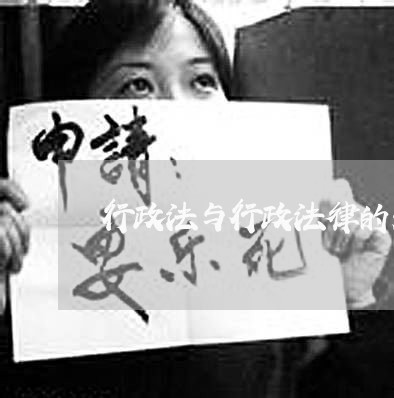 申請:
行政法与行政法律的
安乐死